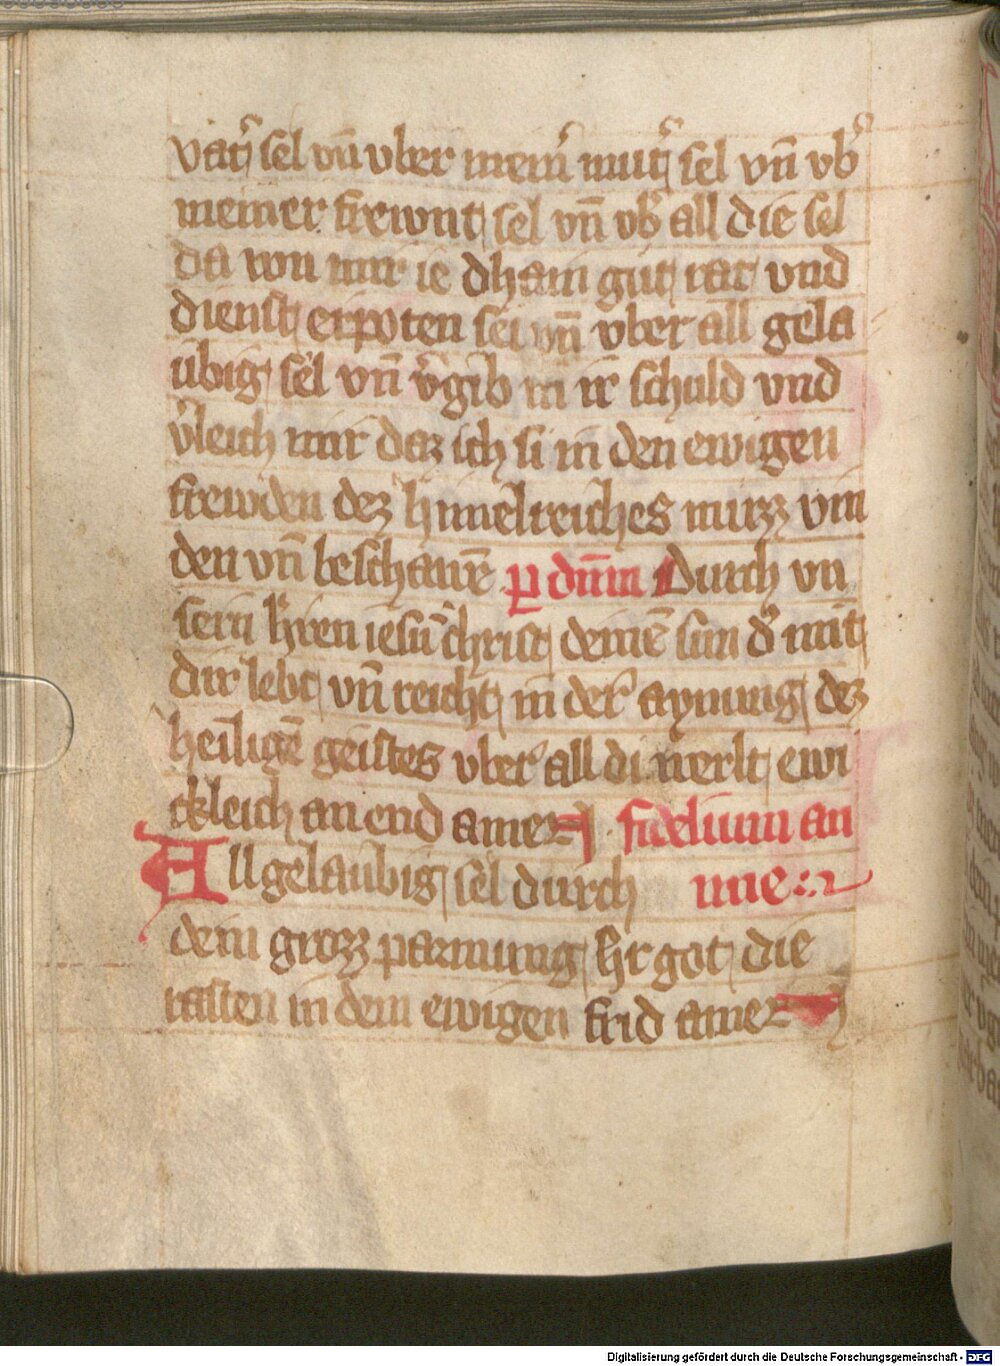 vatʼ sel vn̄ vber meinʼ mutʼ sel vn̄ vbʼ
meiner frewnt sel vn̄ vbʼ all die sel
da von mir ie dhain gut rat vnd
dienst erpoten sei vn̄ vber all gela
ubig sel vn̄ vʼgib in ir schuld vnd
vʼleich mir daz ich si in den ewigen
frewden dez himelreiches muzz vin
den vn̄ beschawē ꝑ dn̄m Durch vn
sern hʼren iesū christ deinē sun dʼ mit
dir lebt vn̄ reicht in derʼ aynung dez
heiligē geistes vberʼ all di werlt ewi
ckleich an end amen fidelium an
All gelaubig sel durch ime
dein grozz parmung hʼr got die
rasten in dem ewigen frid amen
Digitalisierung gefördert durch die Deutsche Forschungsgemeinschaft - DFG